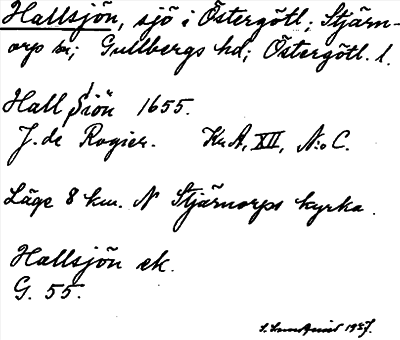 Hallsjön, sjö i Östergötl.; Stjärn-
orp sn; Gullbergs hd; Östergötl. l.
Hall Siön 1655.
J. de Rogier. Kr A, XII, N:o C.
Läge 8 km. N Stjärnorps kyrka.
Hallsjön ek.
G. 55.
1957.